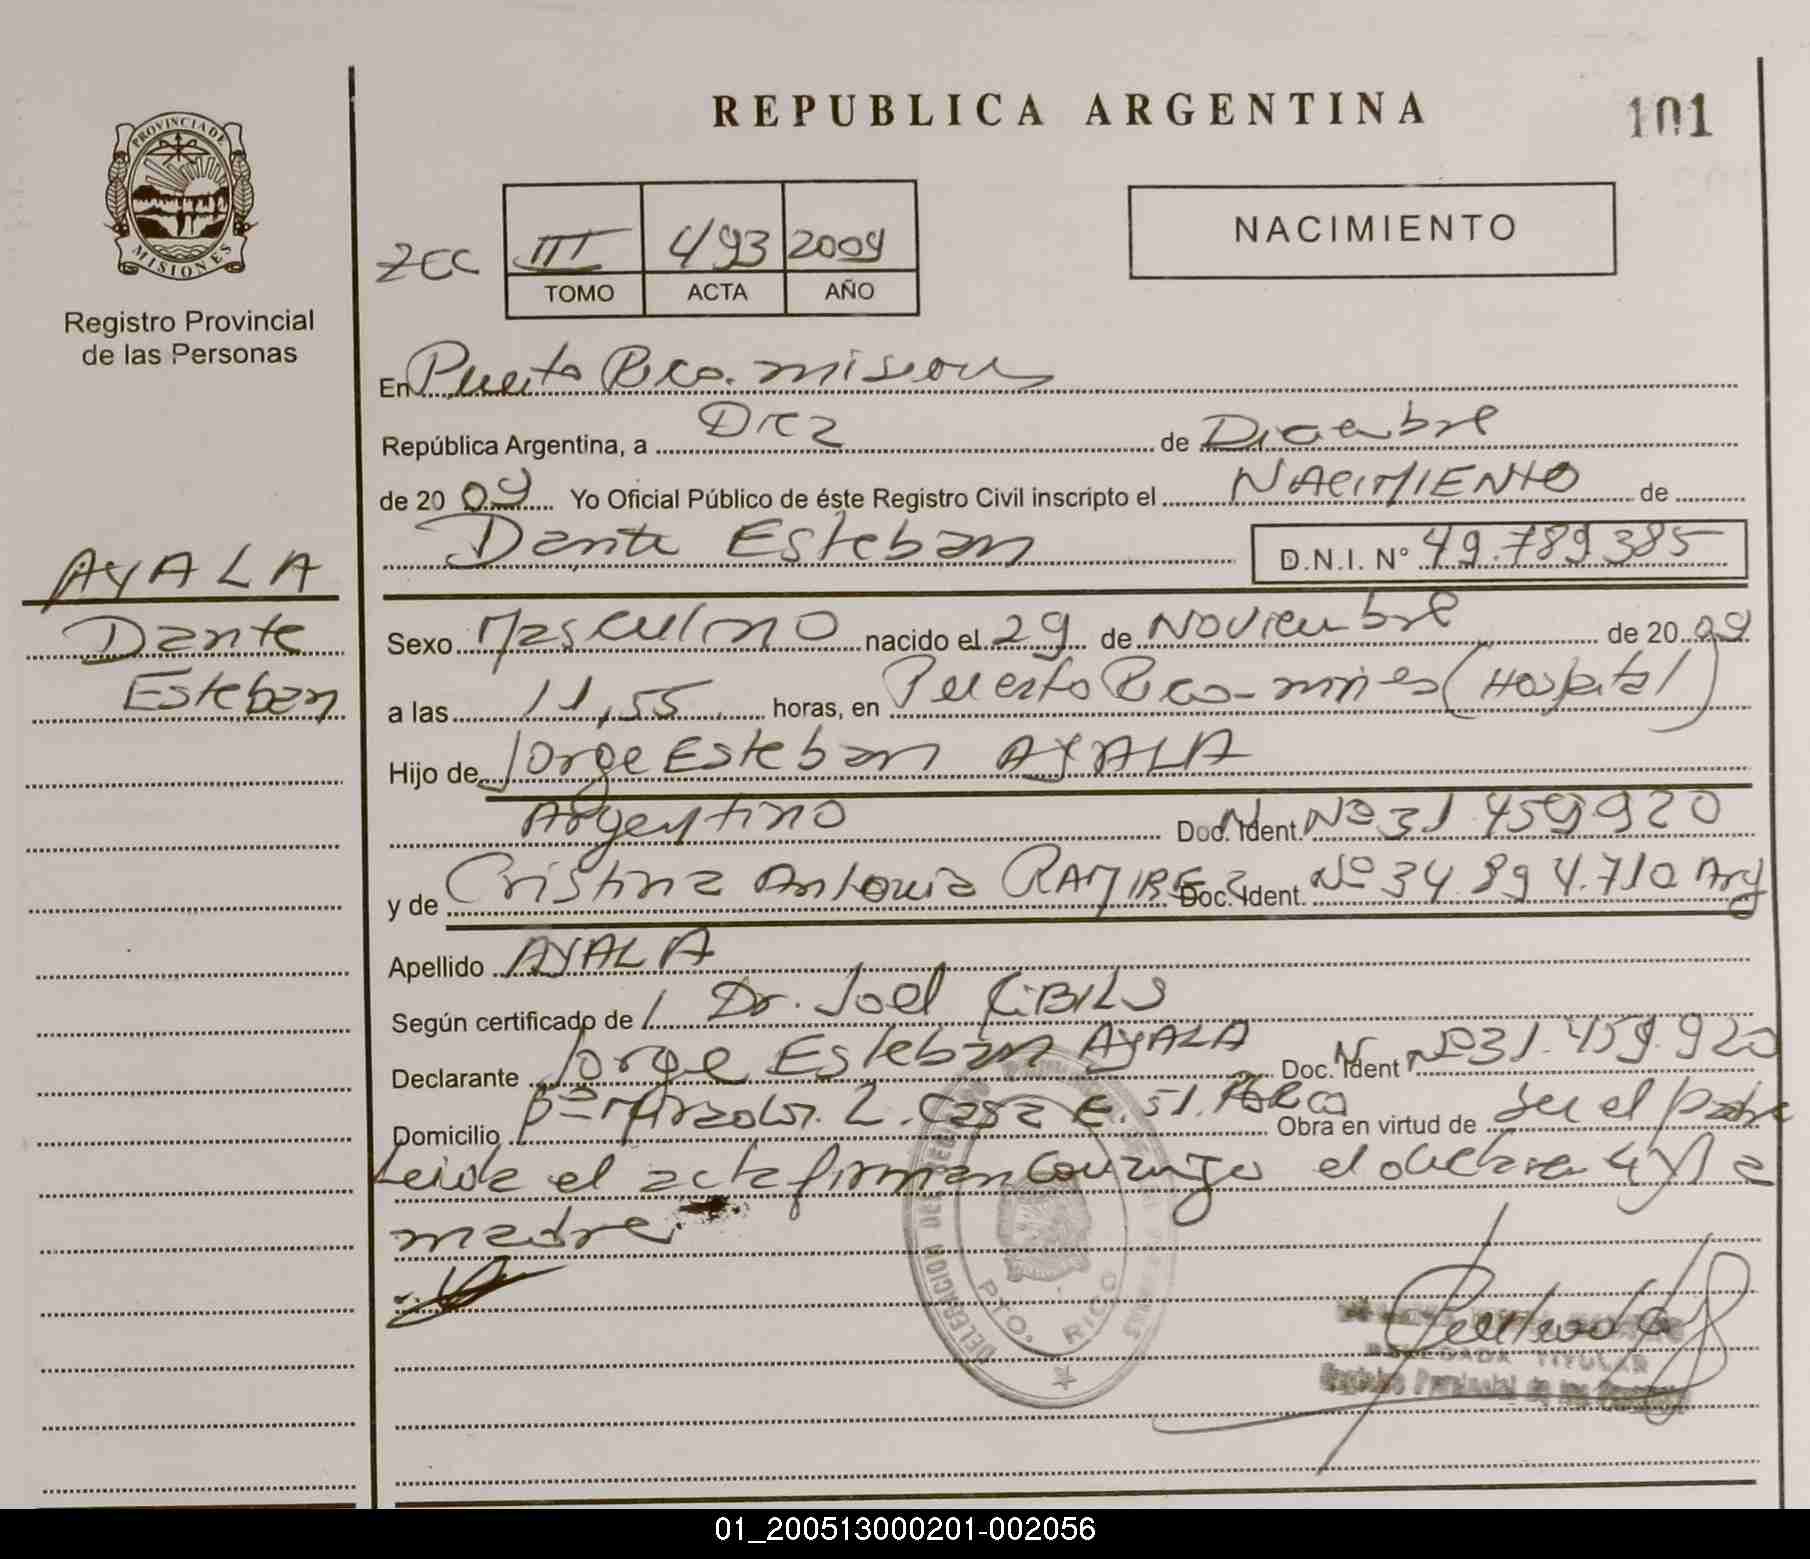 REPUBLICA ARGENTINA
101
PROVINCIA DE
MISIONES
Registro Provincial
de las Personas
2CC
III 493 2009
TOMO ACTA AÑO
NACIMIENTO
En Puerto Rico. misiones
República Argentina, a Diez de Diciembre
de 20 09 Yo Oficial Público de éste Registro Civil inscripto el NACIMIENTO de
Dante Esteban D.N.I. N° 49.789.385
AYALA
Dante
Esteban
Sexo Masculino nacido el 29 de Noviembre de 20 09
a las 11,55 horas, en Puerto Rico - mnes (Hospital)
Hijo de Jorge Esteban AYALA
Argentino Doc. Ident. Nº 31.459.920
y de Cristina Antonia RAMIREZ Doc. Ident. Nº 34.894.710 Arg
Apellido AYALA
Según certificado de Dr. Joel CIBILS
Declarante Jorge Esteban AYALA Doc. Ident Nº 31.459.920
Domicilio Bº 2. Casa E. 51. Pto Rico Obra en virtud de ser el padre
Leida el acta firman conmigo el declarante y la
madre.
DELEGACION DEL
PTO. RICO
DELEGADA TITULAR
Registro Provincial de las Personas
01_200513000201-002056